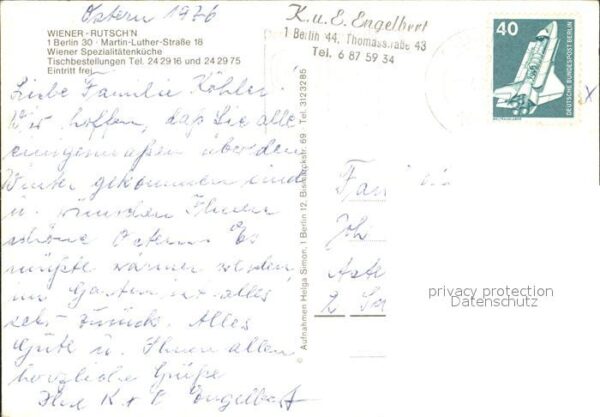 Ostern 1976
WIENER - RUTSCH'N
1 Berlin 30 · Martin-Luther-Straße 18
Wiener Spezialitätenküche
Tischbestellungen Tel. 24 29 16 und 24 29 75
Eintritt frei
Liebe Familie Köhler.
Wir hoffen, daß Sie alle
einigermaßen über den
Winter gekommen sind
u. wünschen Ihnen
schöne Ostern. Es
müßte wärmer werden,
im Garten ist alles
sehr zurück. Alles
Gute u. Ihnen allen
herzliche Grüße
Ihre K + E Engelbert
© Aufnahmen Helga Simon, 1 Berlin 12, Bismarckstr. 69 Tel. 3123285
K. u. E. Engelbert
1 Berlin 44, Thomasstraße 43
Tel. 6 87 59 34
40
DEUTSCHE BUNDESPOST BERLIN
x
Fam
privacy protection
Datenschutz